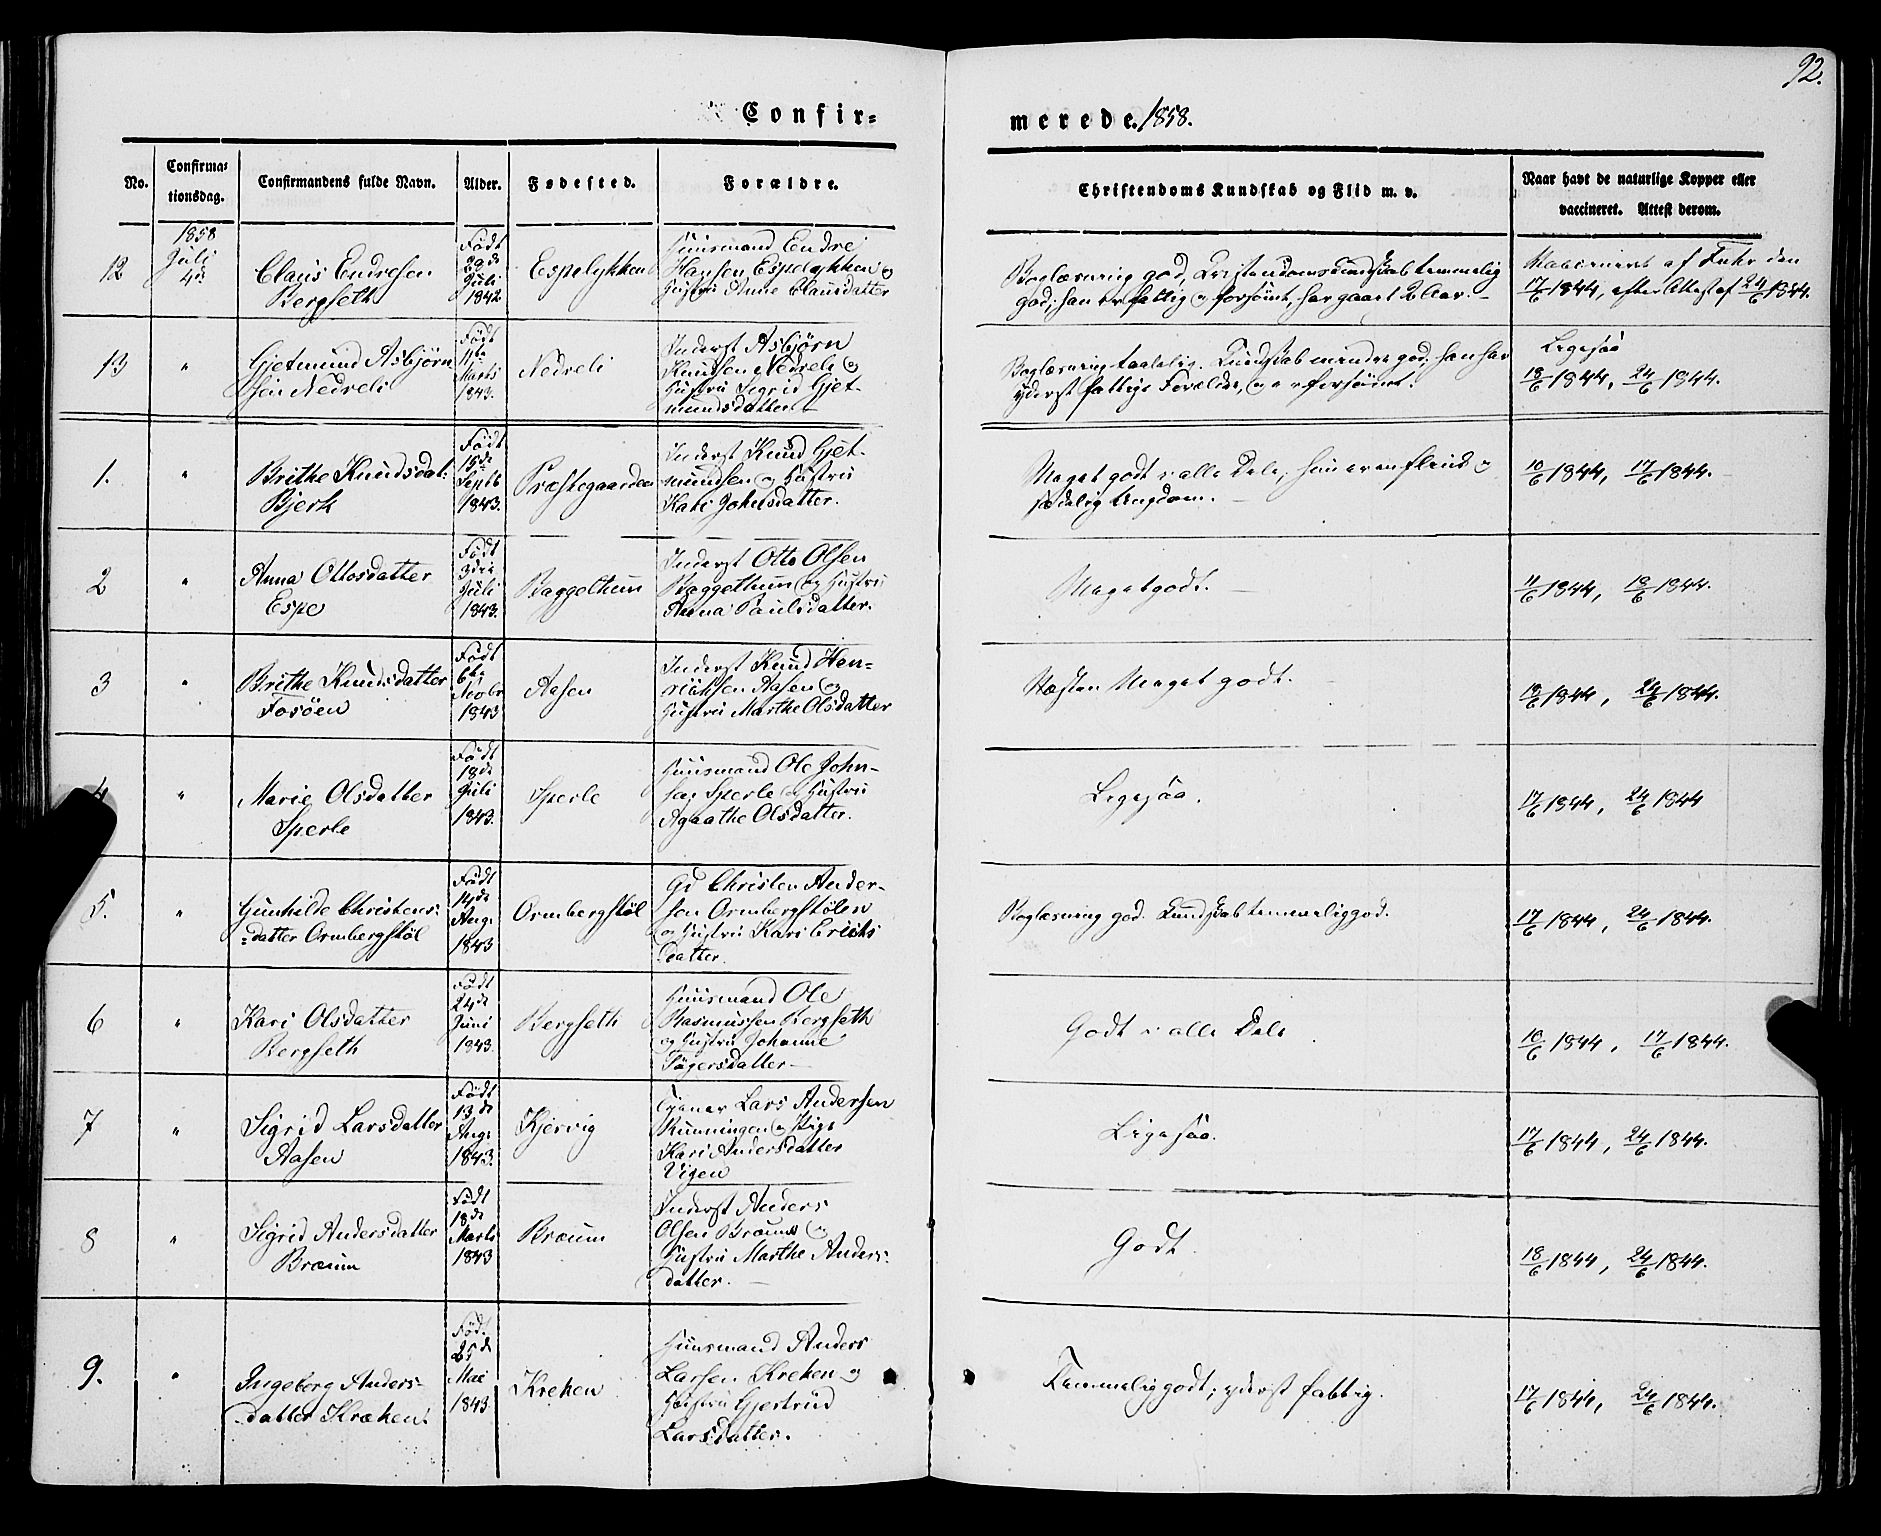 92.
Confir=
merede. 1858.
No.
Confirma=
tionsdag.
Confirmandens fulde Navn.
Alder.
Fødested.
Forældre.
Christendoms Kundskab og Flid m. v.
Naar havt de naturlige Kopper eller
vaccineret. Attest derom.
12
1858
Juli
4de
Claus Endresen
Bergseth
Født
29de
Juli
1842
Espelykken
Huusmand Endre
Hansen Espelykken og
Hustru Anne Clausdatter
Boglæsning god, Kristendomskundskab temmelig
god; han er fattig og forsömt, har gaaet 2 Aar. –
Vaccineret af Fuhr den
17/6 1844, efter Attest af 24/6 1844.
13
"
Gjetmund Asbjørn
sen Nedreli
Født
11te
Marts
1843.
Nedreli
Inderst Asbjörn
Knudsen Nedreli og
Hustru Sigrid Gjet-
mundsdatter –
Boglæsning taalelig. Kundskab mindre god; han har
yderst fattige Forældre, og er forsömt.
Ligesaa
18/6 1844, 24/6 1844.
1.
"
Brithe Knudsdat:
Bjerk
Født
15de
Septb
1843.
Præstegaarden
Inderst Knud Gjet-
mundsen og Hustru
Kari Johnsdatter.
Meget godt i alle Dele, hun er en flink og
sædelig Ungdom. –
10/6 1844, 17/6 1844.
2
"
Anna Ottosdatter
Espe
Født
3die
Juli
1843.
Baggethun
Inderst Otto Olsen
Baggethun og Hustru
Anna Paulsdatter.
Meget godt. –
11/6 1844, 18/6 1844.
3
"
Brithe Knudsdatter
Fosöen
Født
6te
Novbr
1843
Aasen
Inderst Knud Hen-
riksen Aasen og
Hustru Marthe Olsdatter
Næsten Meget godt.
18/6 1844, 24/6 1844.
4
"
Marie Olsdatter
Sperle
Født
18de
Juli
1843.
Sperle
Huusmand Ole John-
sen Sperle og Hustru
Agaathe Olsdatter.
Ligesaa.
17/6 1844, 24/6 1844
5.
"
Gunhilde Christens:
=datter Ormbergstöl
Født
14de
Aug.
1843
Ormbergstöl
Gd Christen Ander-
sen Ormbergstölen
og Hustru Kari Eriks
datter.
Boglæsning god. Kundskab temmelig god.
17/6 1844, 24/6 1844.
6
"
Kari Olsdatter
Bergseth
Født
24de
Juni
1843.
Bergseth
Huusmand Ole
Rasmussen Bergseth
og Hustru Johanne
Sögersdatter –
Godt i alle Dele
10/6 1844, 17/6 1844.
7
"
Sigrid Larsdatter
Aasen
Født
13de
Aug.
1843.
Kjervig
Lars Andersen
Rønningen og Pige
Kari Andersdatter
Vigen
Ligesaa.
17/6 1844, 24/6 1844.
8
"
Sigrid Andersdatter
Bræum
Født
18de
Marts
1843
Bræum
Inderst Anders
Olsen Bræum og
Hustru Marthe Anders:
datter. –
Godt.
18/6 1844, 24/6 1844.
9.
"
Ingeborg Anders-
datter Kræken.
Født.
25de
Mai
1843.
Kreken
Huusmand Anders
Larsen Kreken og
Hustru Gjertrud
Larsdatter.
Temmelig godt; yderst fattig.
17/6 1844, 24/6 1844.